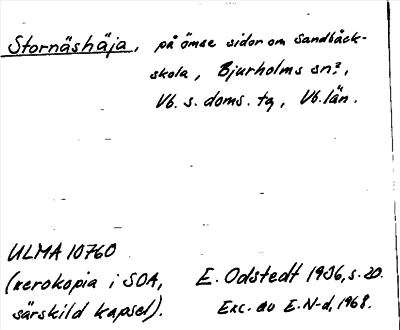 Stornäshäja, på ömse sidor om Sandbäck-
skola, Bjurholms sn?,
Vb. s. doms. tg, Vb. län.
ULMA 10760
(xerokopia i SOA,
särskild kapsel).
E. Odstedt 1936, s. 20.
Exc. av E. N-d, 1968.